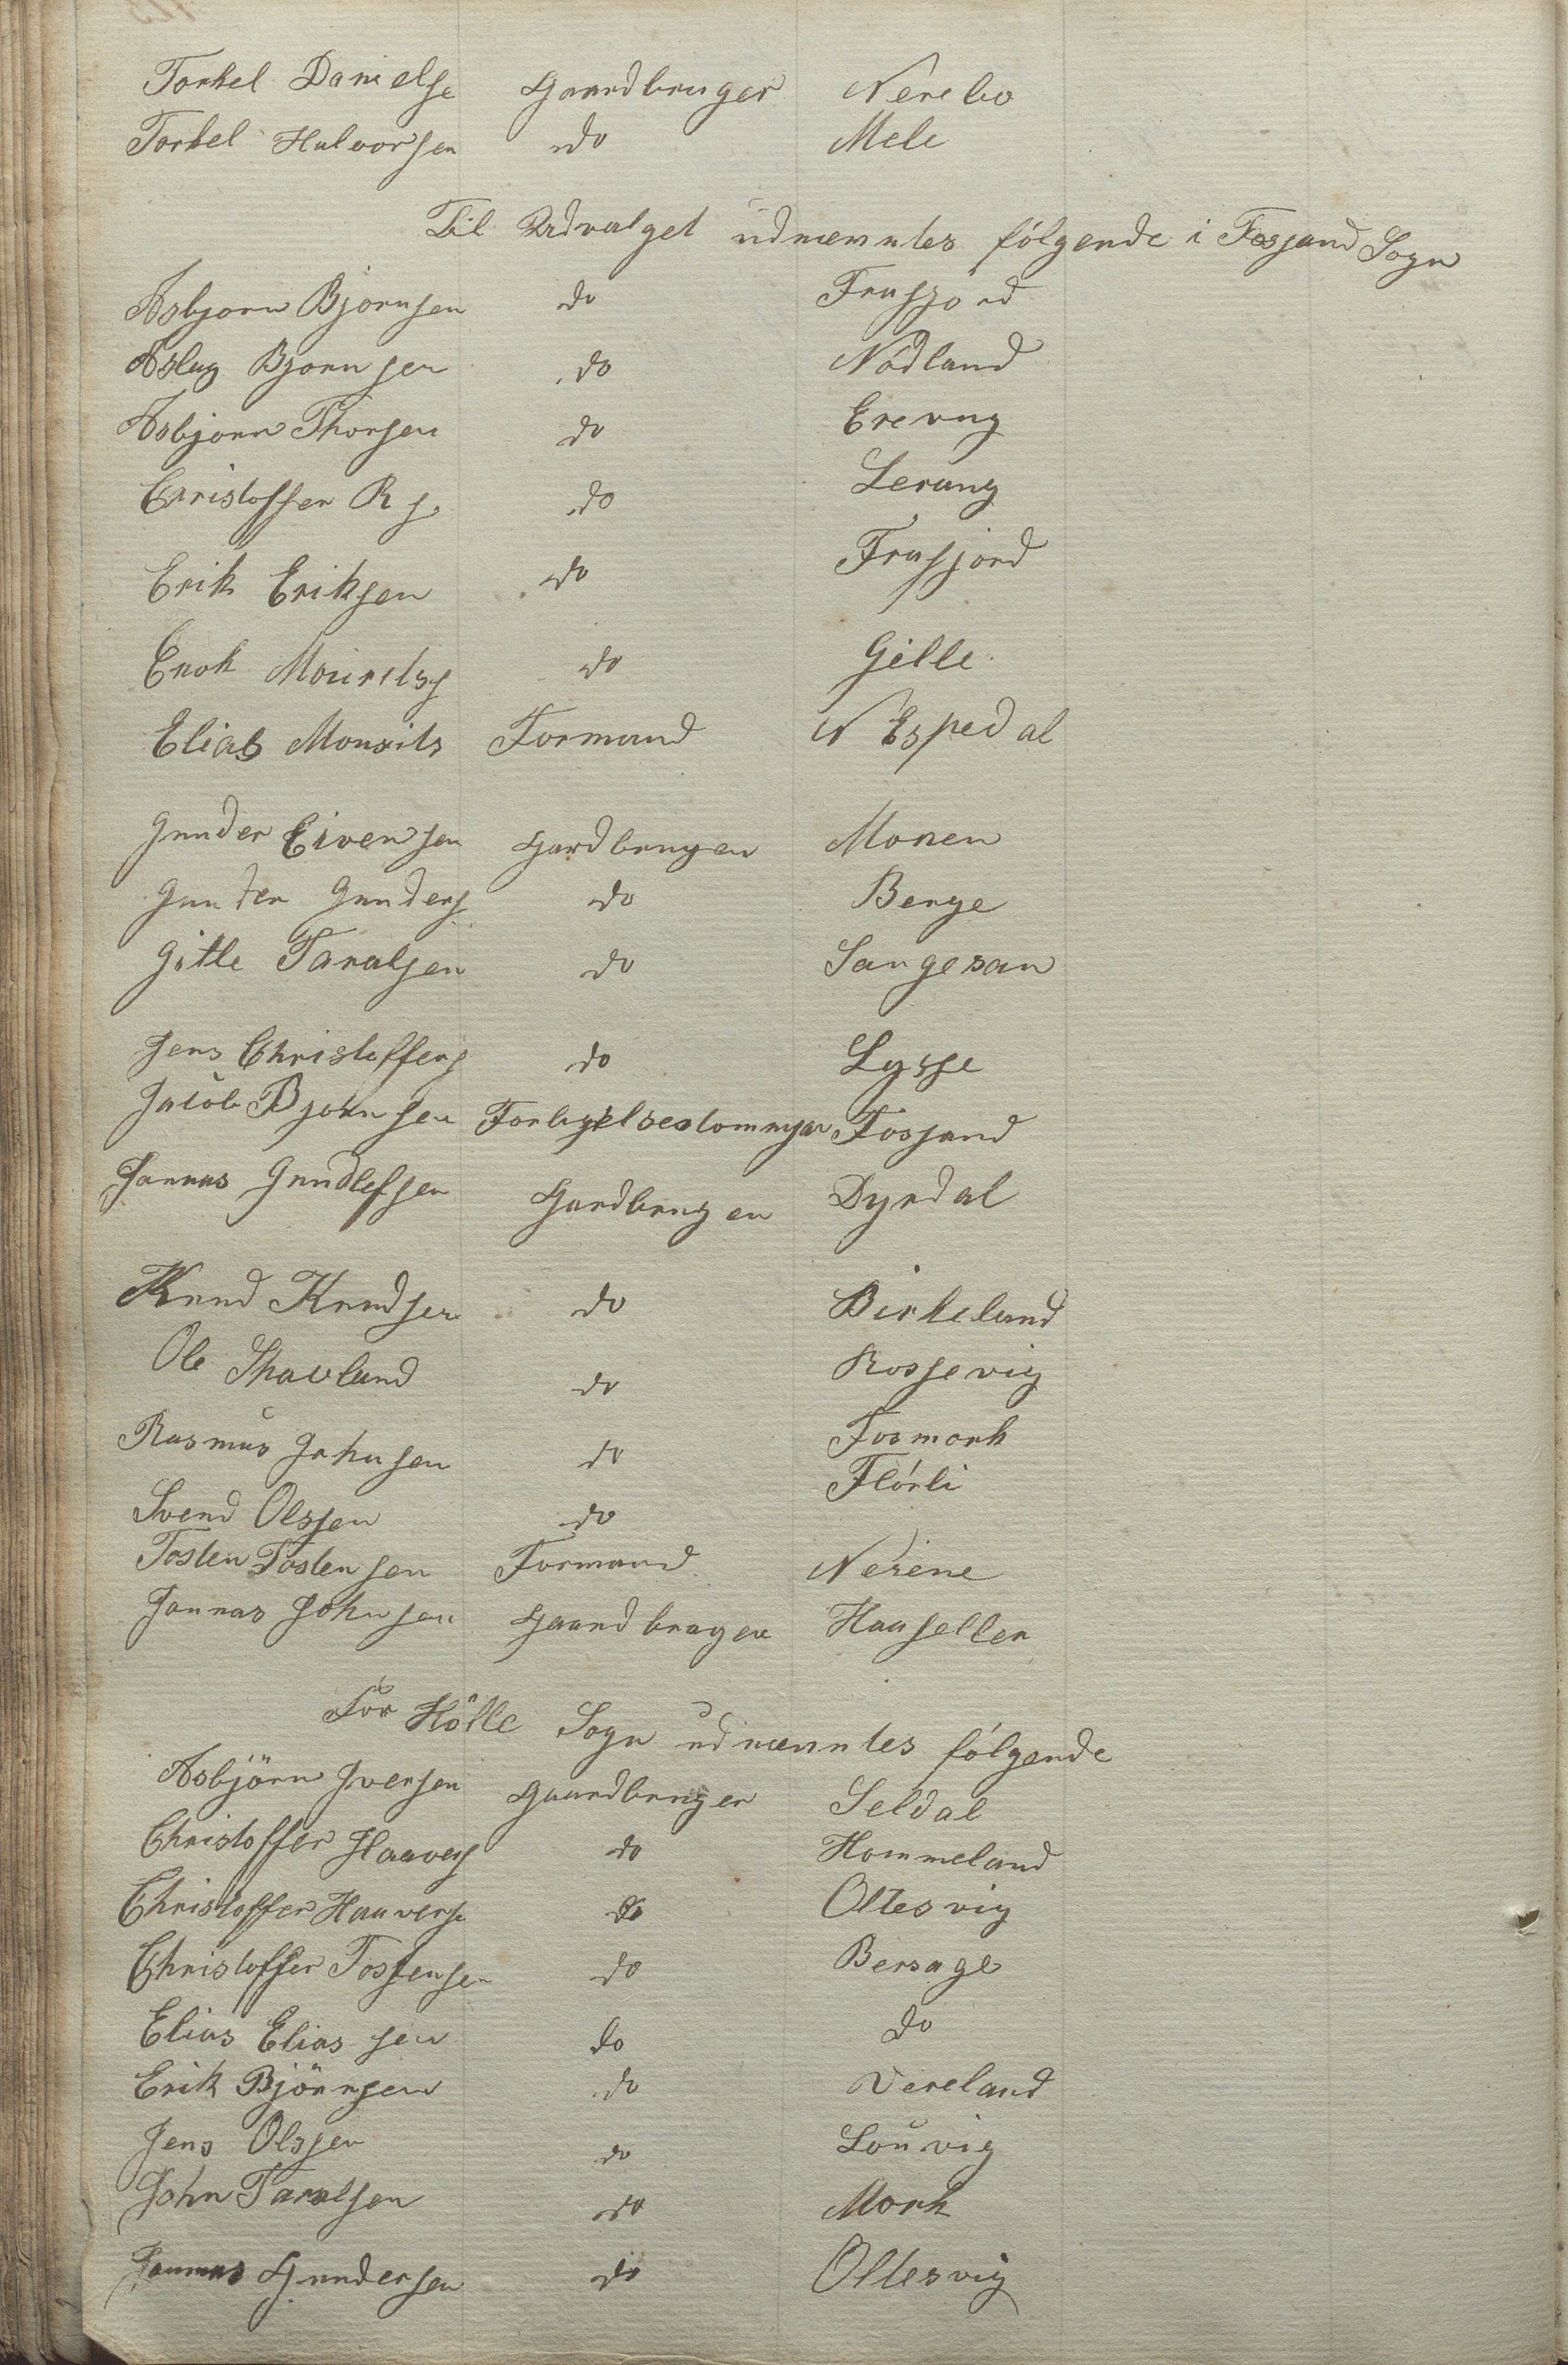 Torkel Danielse Gaardbruger Nerebo
Torkel Halvorsen do Mele
Til Udvalget udnævntes fölgende i Fosjand Sogn
Asbjorn Bjornsen do Frafjord
Aslag Bjornsen do Nodland
Asbjorn Thorsen do Erevug
Cristoffer R s. do Lerang
Erik Eriksen do Frafjord
Enok Mouritss do Gille
Elias Monrits Formand N Espedal
Gunder Eivensen Gardbruger Monen
Gunder Gunders do Berge
Gitle Taralsen do Sangesan
Jens Christoffers do Lysse
Jacob Bjornsen Forligelseskommisær Fosjand
Jonnas Gundlefsen Gardbruger Dyrdal
Knud Knudsen do Birkeland
Ole Thauland do Rossevig
Rasmus Johnsen do Fosmork
Svend Olssen do Flörli
Tosten Tostensen Formand Nerene
Jonnas Johnsen Gaardbruger Haaheller
For Hölle Sogn udnævntes fölgende
Asbjörn Iversen Gaardbruger Seldal
Christoffer Haavers do Hommeland
Christoffer Haaverse do Oltesvig
Christoffer Tostensen do Bersage
Elias Eliassen do do
Erik Björnsen do Vereland
Jens Olssen do Louvig
John Taralsen do Mork
Jonnas Gundersen do Oltesvig